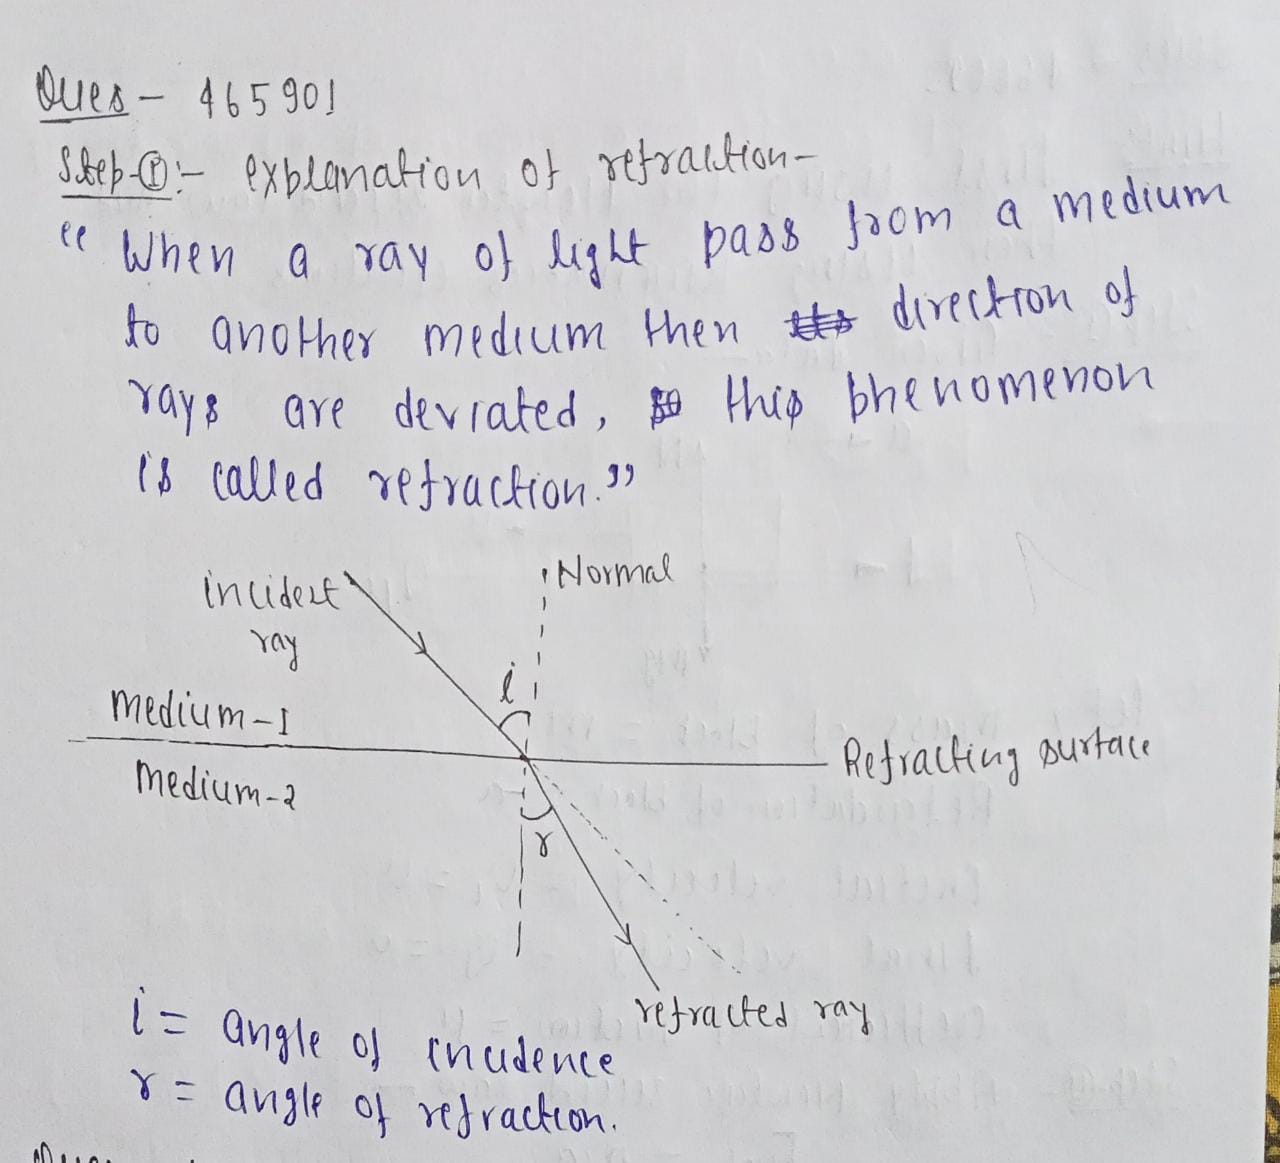 Ques - 465901
Step-①:- explanation of refraction-
“ When a ray of light pass from a medium
to another medium then direction of
rays are deviated, this phenomenon
is called refraction.”
incident
ray
Normal
i
medium-1
medium-2
Refracting surface
r
refracted ray
i = angle of incidence
r = angle of refraction.